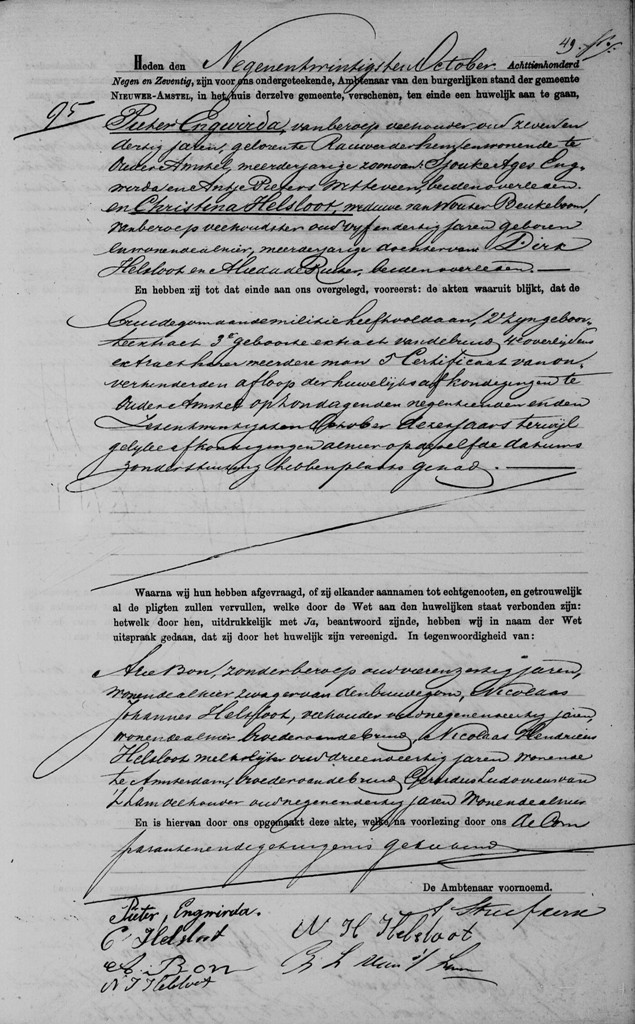 49
Heden den Negenentwintigsten October Achttienhonderd
Negen en Zeventig, zijn voor ons ondergeteekende, Ambtenaar van den burgerlijken stand der gemeente
NIEUWER-AMSTEL, in het huis derzelve gemeente, verschenen, ten einde een huwelijk aan te gaan,
95
Pieter Engwirda, van beroep veehouder, oud zeven en
dertig jaren, geboren te Rauwerderhem en wonende te
Ouder Amstel, meerderjarige zoon van Sjouke Ages Eng-
werda en Antje Pieters Metteveen, beiden overleden.
en Christina Helsloot, weduwe van Wouter Beukeboom,
van beroep veehoudster oud vyf en dertig jaren geboren
en wonende alhier, meerderjarige dochter van Dirk
Helsloot en Alida de Ruiter, beiden overleden.
En hebben zij tot dat einde aan ons overgelegd, vooreerst: de akten waaruit blijkt, dat de
Bruidegom aan de militie heeft voldaan, 2e zyn geboor-
te extract 3e geboorte extract van de bruid 4e overlydens
extract harer meerdere man 5e Certificaat van on-
verhinderden afloop der huwelijks afkondigingen te
Ouder Amstel op zondag den negentienden en den
Zesentwintigsten October dezes jaars terwyl
gelyke afkondigingen alhier op dezelfde datums
zonder stuiting hebben plaats gehad.
Waarna wij hun hebben afgevraagd, of zij elkander aannamen tot echtgenooten, en getrouwelijk
al de pligten zullen vervullen, welke door de Wet aan den huwelijken staat verbonden zijn:
hetwelk door hen, uitdrukkelijk met Ja, beantwoord zijnde, hebben wij in naam der Wet
uitspraak gedaan, dat zij door het huwelijk zijn vereenigd. In tegenwoordigheid van:
Arie Bon, zonder beroep oud vierenzestig jaren,
wonende alhier zwager van den bruidegom, Nicolaas
Johannes Helsloot, veehouder oud negenenveertig jaren,
wonende alhier broeder van de bruid, Nicolaas Hendricus
Helsloot melkslyter oud drieenveertig jaren wonende
te Amsterdam, broeder van de bruid, Gerardus Ludovicus van
't Lam veehouder oud negenendertig jaren wonende alhier
En is hiervan door ons opgemaakt deze akte, welke, na voorlezing door ons de Com
paranten en de getuigen is geteekend
De Ambtenaar voornoemd.
Pieter, Engwirda.
C Helsloot
N H Helsloot
A. Bon
N J Helsloot